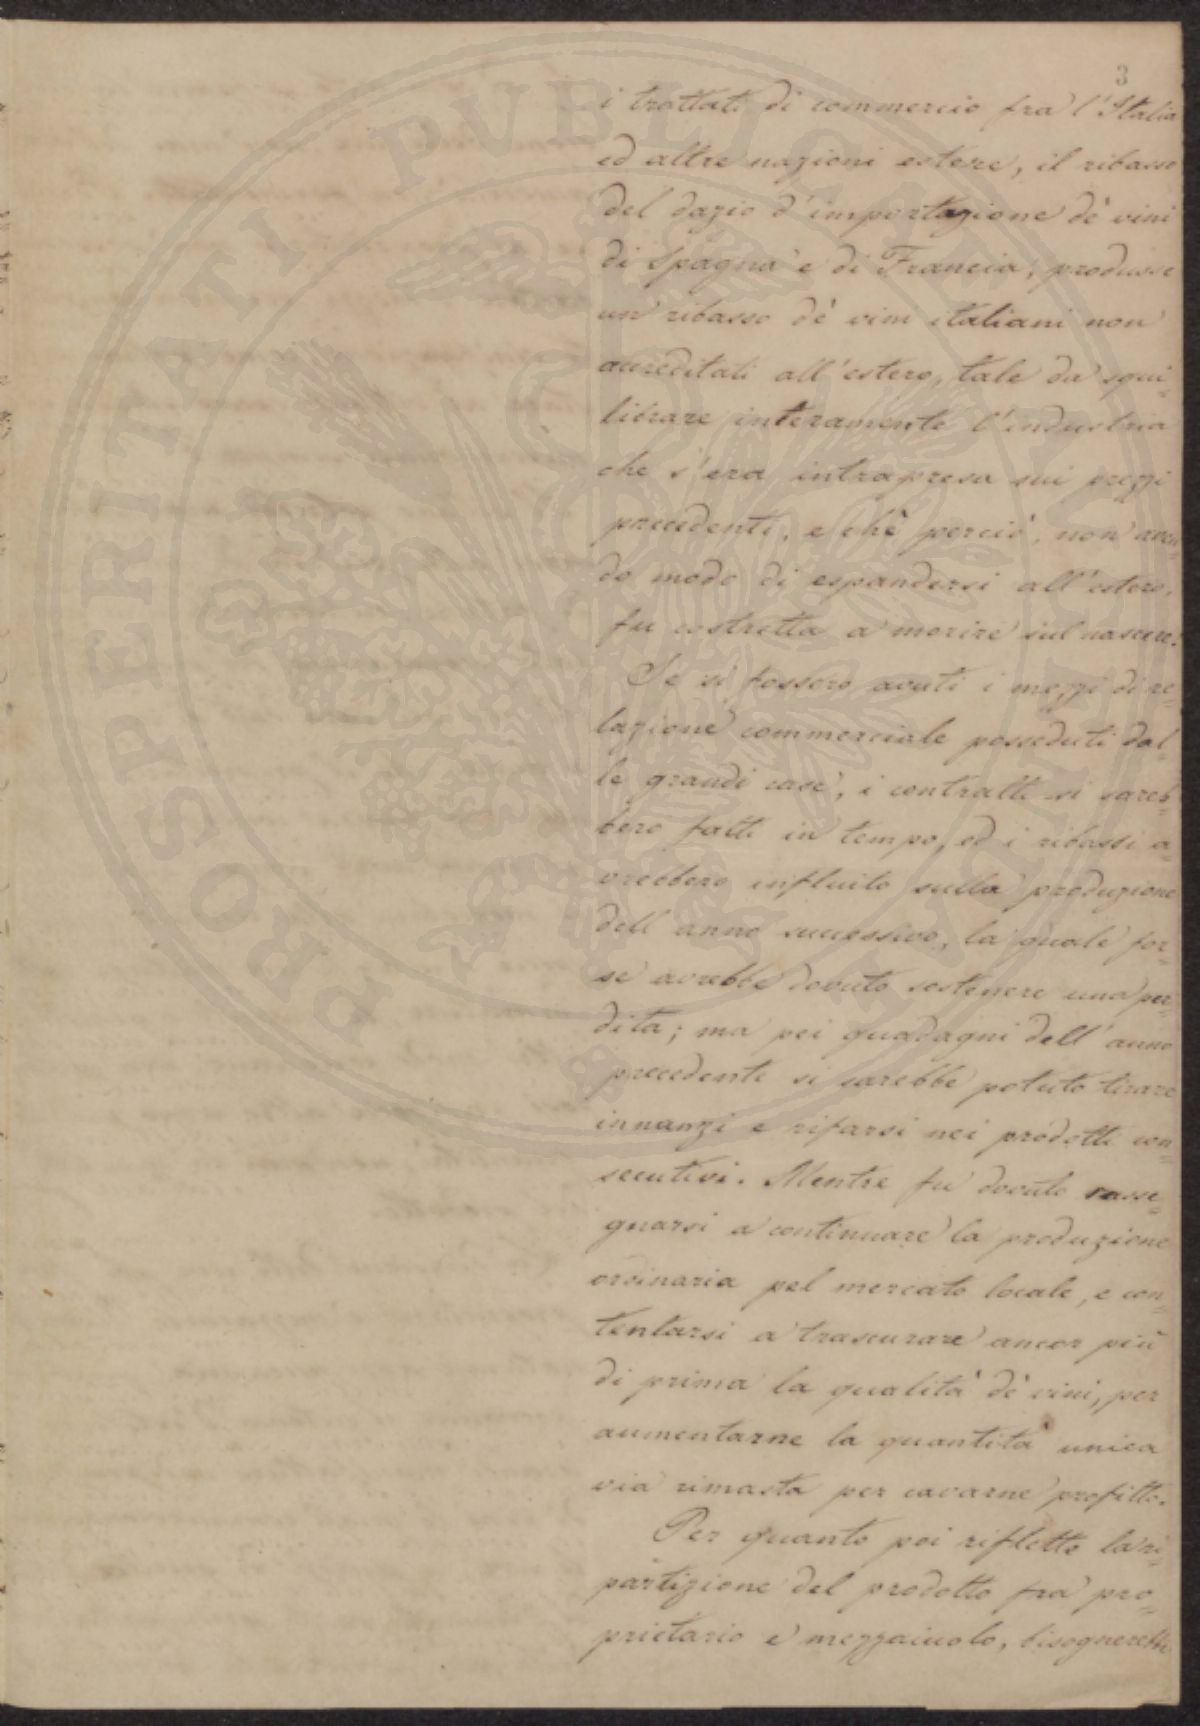 3
i trattati di commercio fra l'Italia
ed altre nazioni estere, il ribasso
del dazio d'importazione de' vini
di Spagna e di Francia, produsse
un ribasso de' vini italiani non
accreditati all'estero, tale da squi=
librare interamente l'industria
che s'era intrapresa sui prezzi
precedenti, e che perciò, non aven
do modo di espandersi all'estero,
fu costretta a morire sul nascere!
Se si fossero avuti i mezzi di re=
lazione commerciale posseduti dal=
le grandi case, i contratti si sareb=
bero fatti in tempo, ed i ribassi a=
vrebbero influito sulla produzione
dell'anno successivo, la quale for=
se avrebbe dovuto sostenere una per=
dita; ma pei guadagni dell'anno
precedente si sarebbe potuto tirare
innanzi e rifarsi nei prodotti con=
secutivi. Mentre fu dovuto rasse=
gnarsi a continuare la produzione
ordinaria pel mercato locale, e con=
tentarsi a trascurare ancor più
di prima la qualità de' vini, per
aumentarne la quantità unica
via rimasta per cavarne profitto.
Per quanto poi rifletto la ri=
partizione del prodotto fra pro=
prietario e mezzaiuolo, bisognerebbe
PROSPERITATI PVBLICAE AVGENDAE